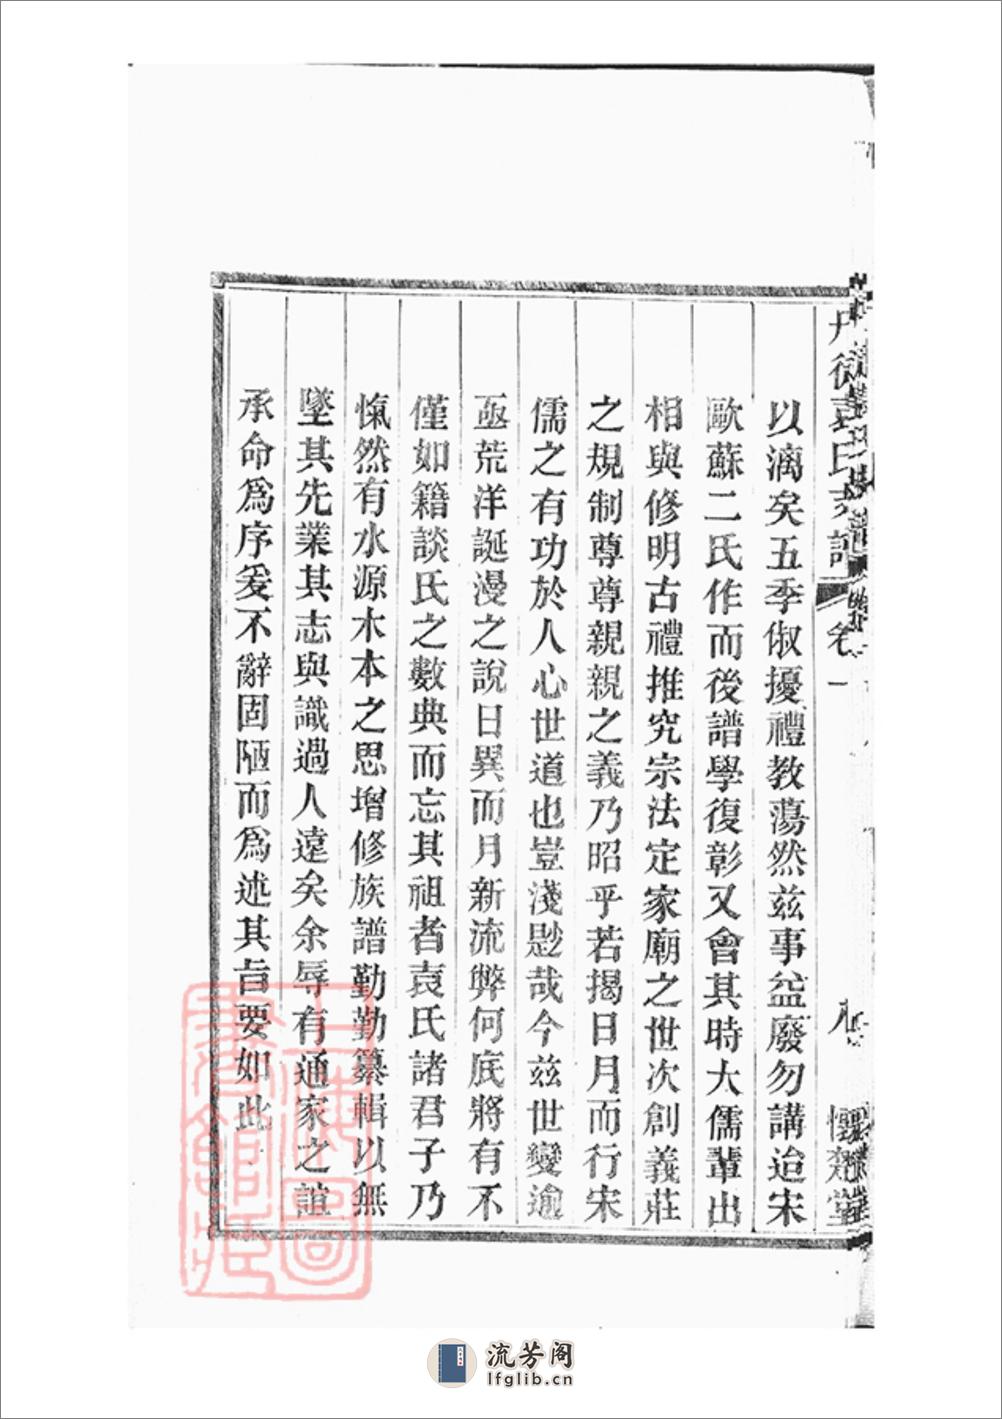 丹徒袁氏宗譜 卷一 懷楚堂
以漓矣五季俶擾禮教蕩然兹事益廢勿講迨宋
歐蘇二氏作而後譜學復彰又會其時大儒輩出
相與修明古禮推究宗法定家廟之世次創義莊
之規制尊尊親親之義乃昭乎若揭日月而行宋
儒之有功於人心世道也豈淺尠哉今兹世變逾
亟荒洋誕漫之說日異而月新流弊何底將有不
僅如籍談氏之數典而忘其祖者袁氏諸君子乃
愾然有水源木本之思增修族譜勤勤纂輯以無
墜其先業其志與識過人遠矣余辱有通家之誼
承命爲序爰不辭固陋而爲述其恉要如此
上海圖
書館藏
流芳阁
lfglib.cn